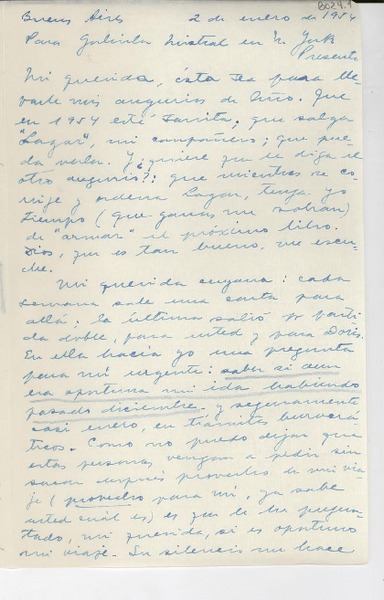 8024.9
Buenos Aires 2 de enero de 1954
Para Gabriela Mistral en N. York
Presente
Mi querida, ésta sea para lle-
varle mis augurios de Año. Que
en 1954 esté sanita; que salga
"Lagar", mi compañero; que pue-
da verla. Y ¿quiere que le diga el
otro augurio?: que mientras se co-
rrije y ordena Lagar, tenga yo
tiempo (que ganas me sobran)
de "armar" el próximo libro.
Dios, que es tan bueno, me escu-
che.
Mi querida cuyana: cada
semana sale una carta para
allá; la última salió por parti-
da doble, para usted y para Doris.
En ella hacía yo una pregunta
para mí urgente: saber si aun
era oportuna mi ida habiendo
pasado diciembre y seguramente
casi enero, en trámites burocrá-
ticos. Como no puedo dejar que
estas personas vengan a pedir sin
sacar después provecho de mi via-
je (provecho para mí, ya sabe
usted cuál es) es que le he pregun-
tado, mi querida, si es oportuno
mi viaje. Su silencio me hace